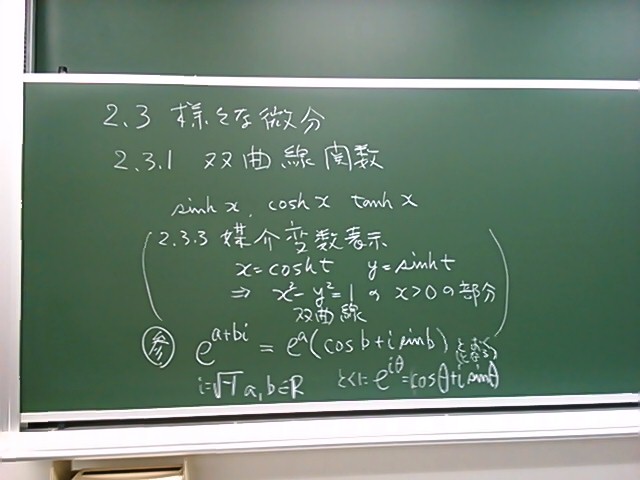 2.3 様々な微分
2.3.1 双曲線関数
sinh x, cosh x tanh x
(2.3.3 媒介変数表示
x=cosht y=sinht
⇒ x²-y²=1 の x>0 の部分)
双曲線
参 e^{a+bi} = e^a(cos b+i sin b)
i=√-1 a,b∈R とくに e^{iθ}=cosθ+i sinθ